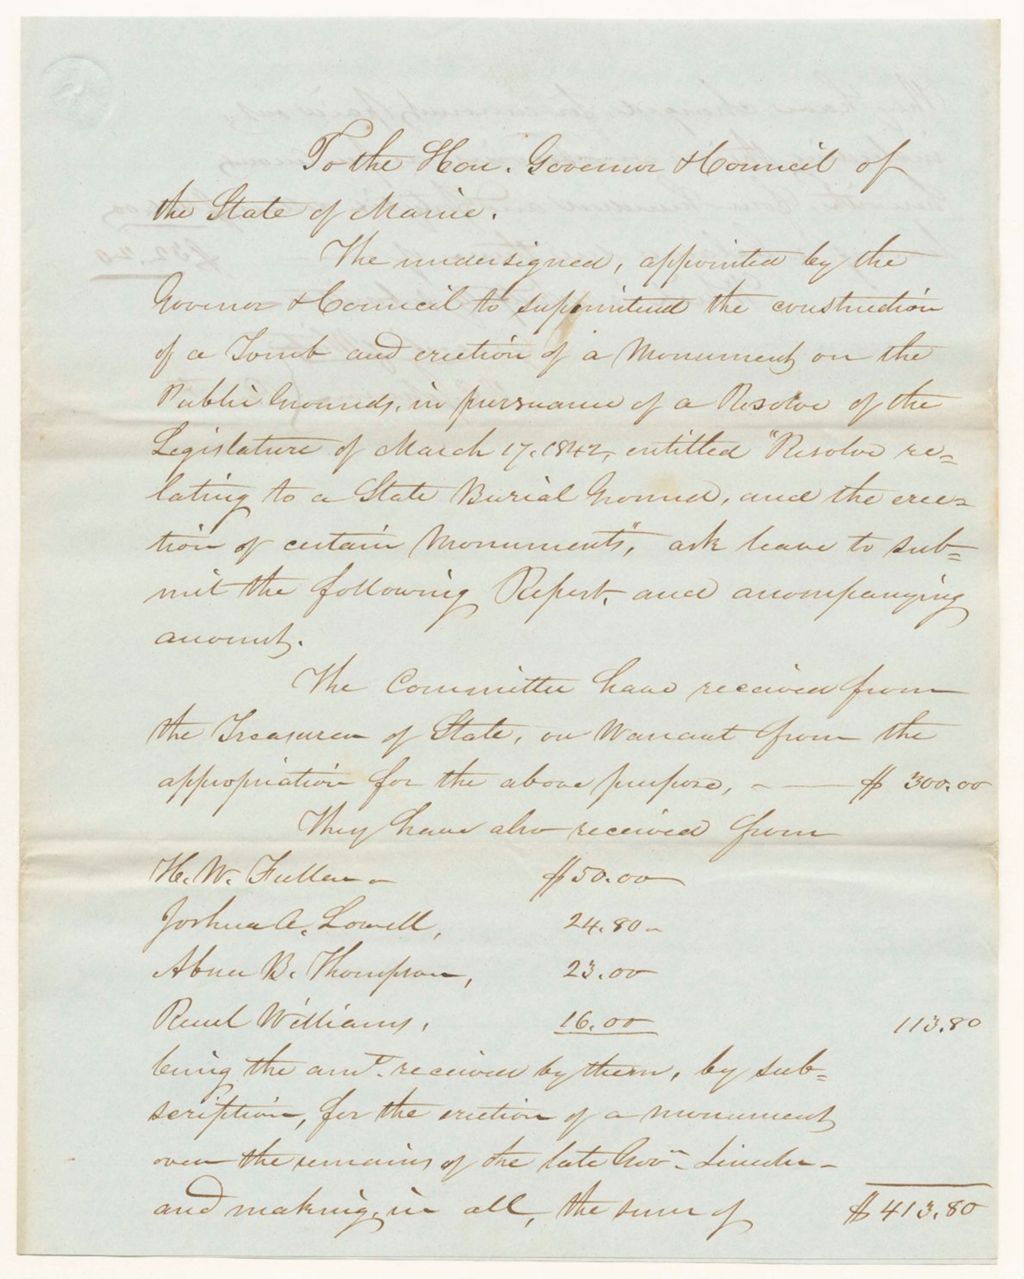 To the Hon. Governor & Council of
the State of Maine.
The undersigned, appointed by the
Govenor & Council to supperintend the construction
of a Tomb and erection of a Monument on the
Public Grounds, in pursuance of a Resolve of the
Legislature of March 17, 1842, entitled "Resolve re=
lating to a State Burial Ground, and the erec=
tion of certain Monuments", ask leave to sub=
mit the following Report, and accompanying
account.
The Committee have received from
the Treasurer of State, on Warrant from the
appropriation for the above purpose, — $ 300.00
They have also received from
H. W. Fuller — $50.00
Joshua A. Lowell, 24.80
Abner B. Thompson, 23.00
Reuel Williams, 16.00 113.80
being the amt. received by them, by sub=
scription, for the erection of a monument
over the remains of the late Govr. Lincoln —
and making, in all, the sum of $413.80